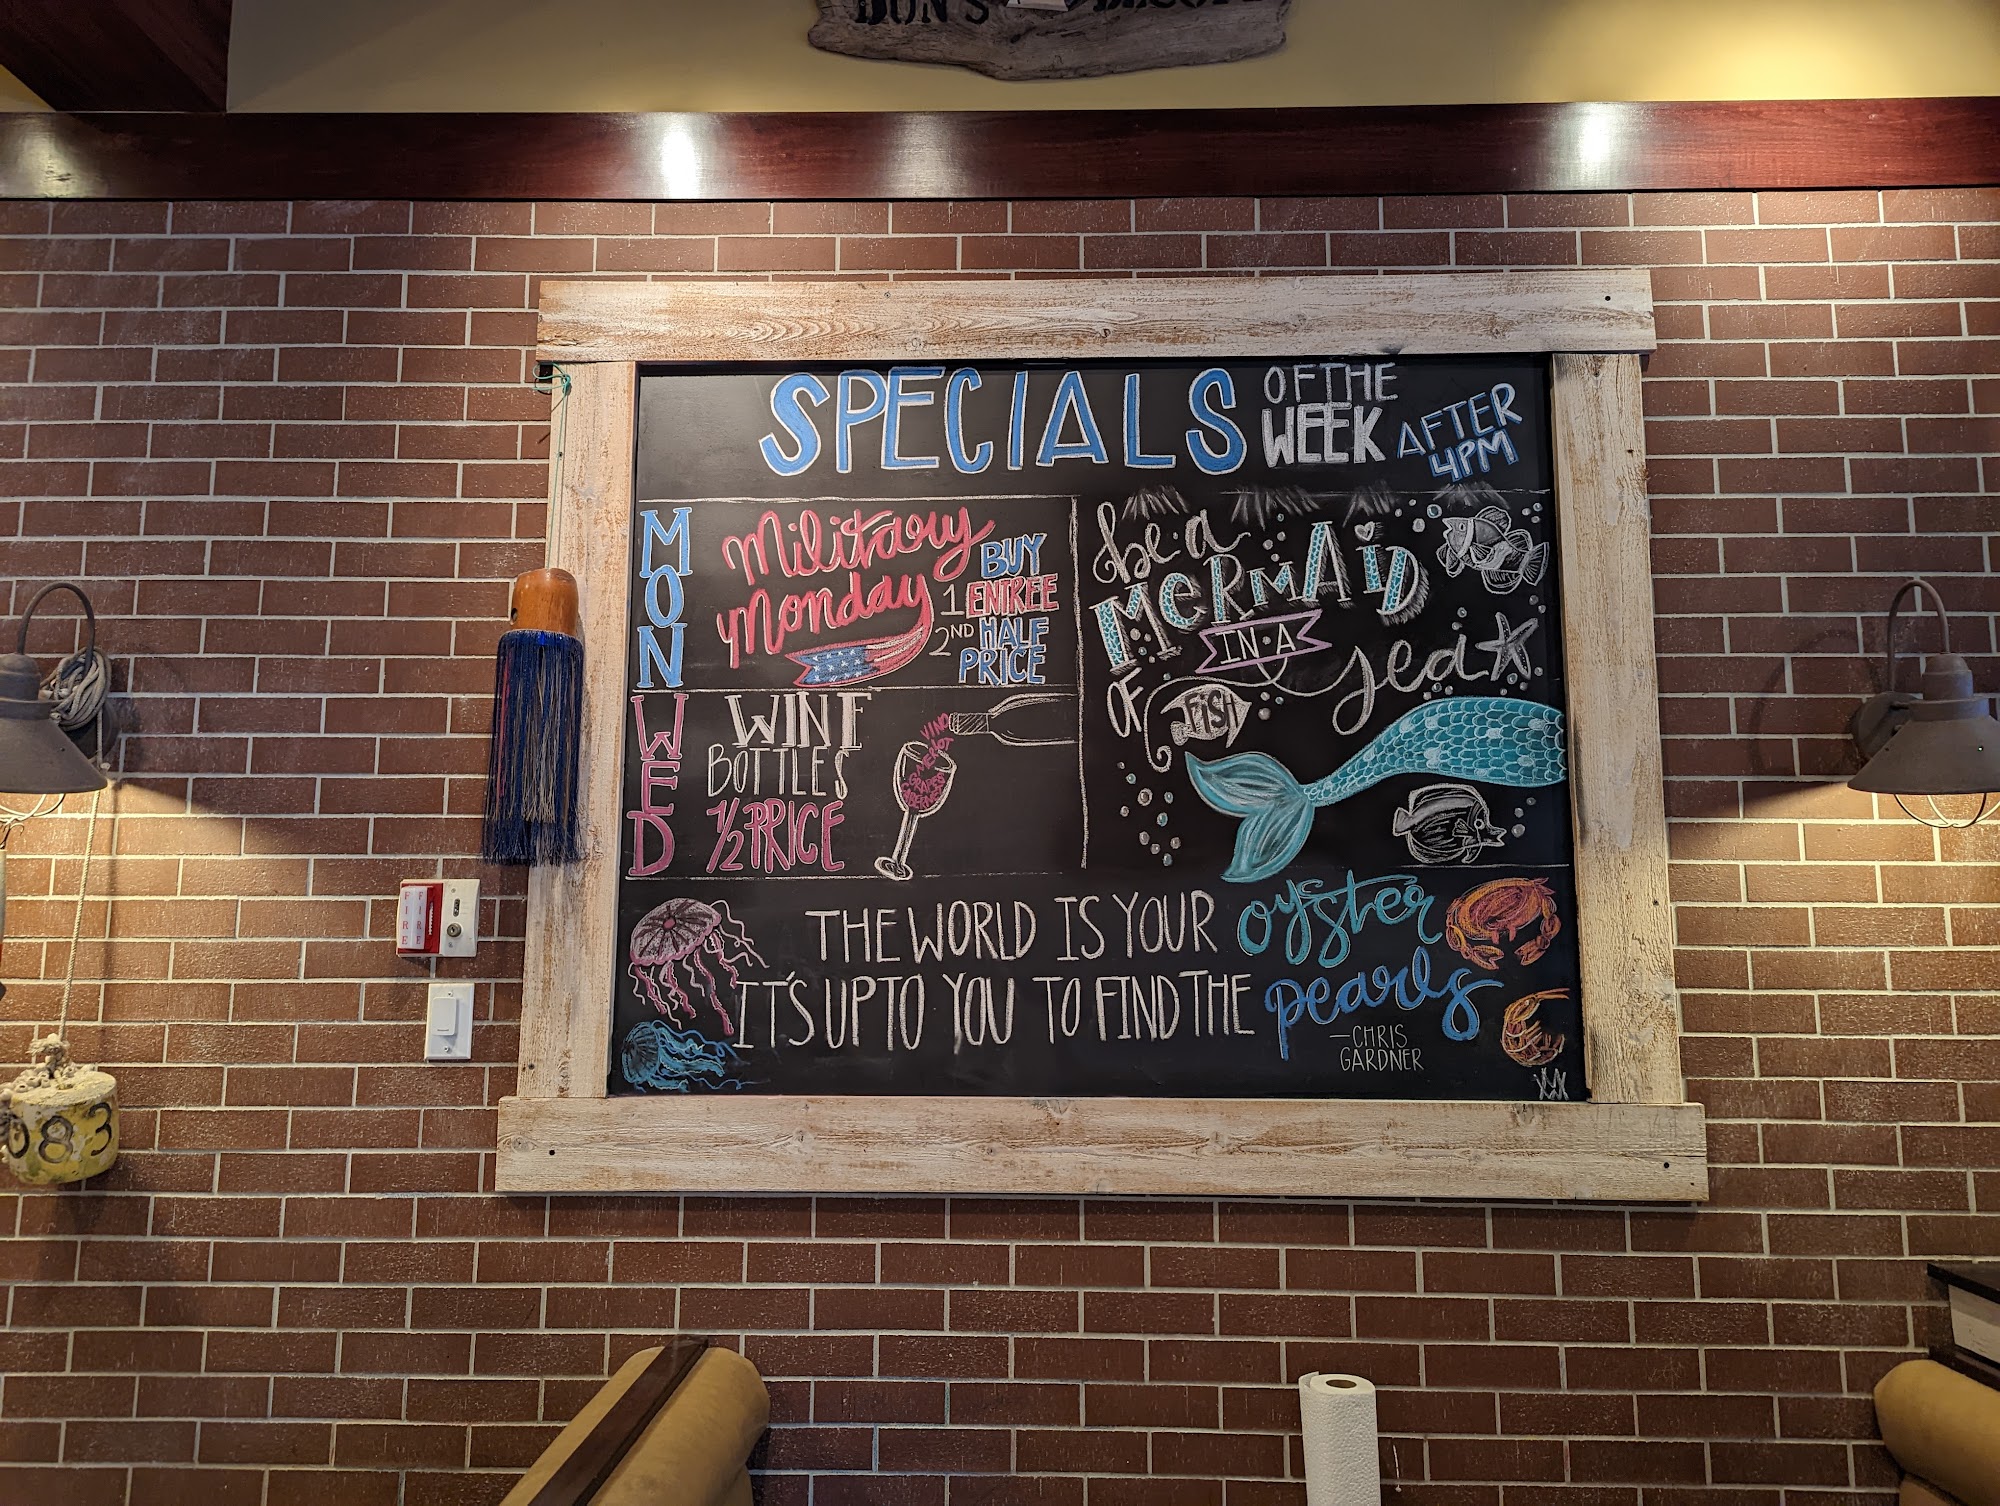 DON'S
SPECIALS
OF THE
WEEK
AFTER
4PM
MON
Military
Monday
BUY
1 ENTREE
2ND HALF
PRICE
WED
WINE
BOTTLES
1/2 PRICE
VINO
MERLOT
GRAPES
be·a
MERMAID
IN·A
sea
OF
FISH
THE WORLD IS YOUR oyster
IT'S UP TO YOU TO FIND THE pearls
—CHRIS
GARDNER
FIRE
FIRE
083